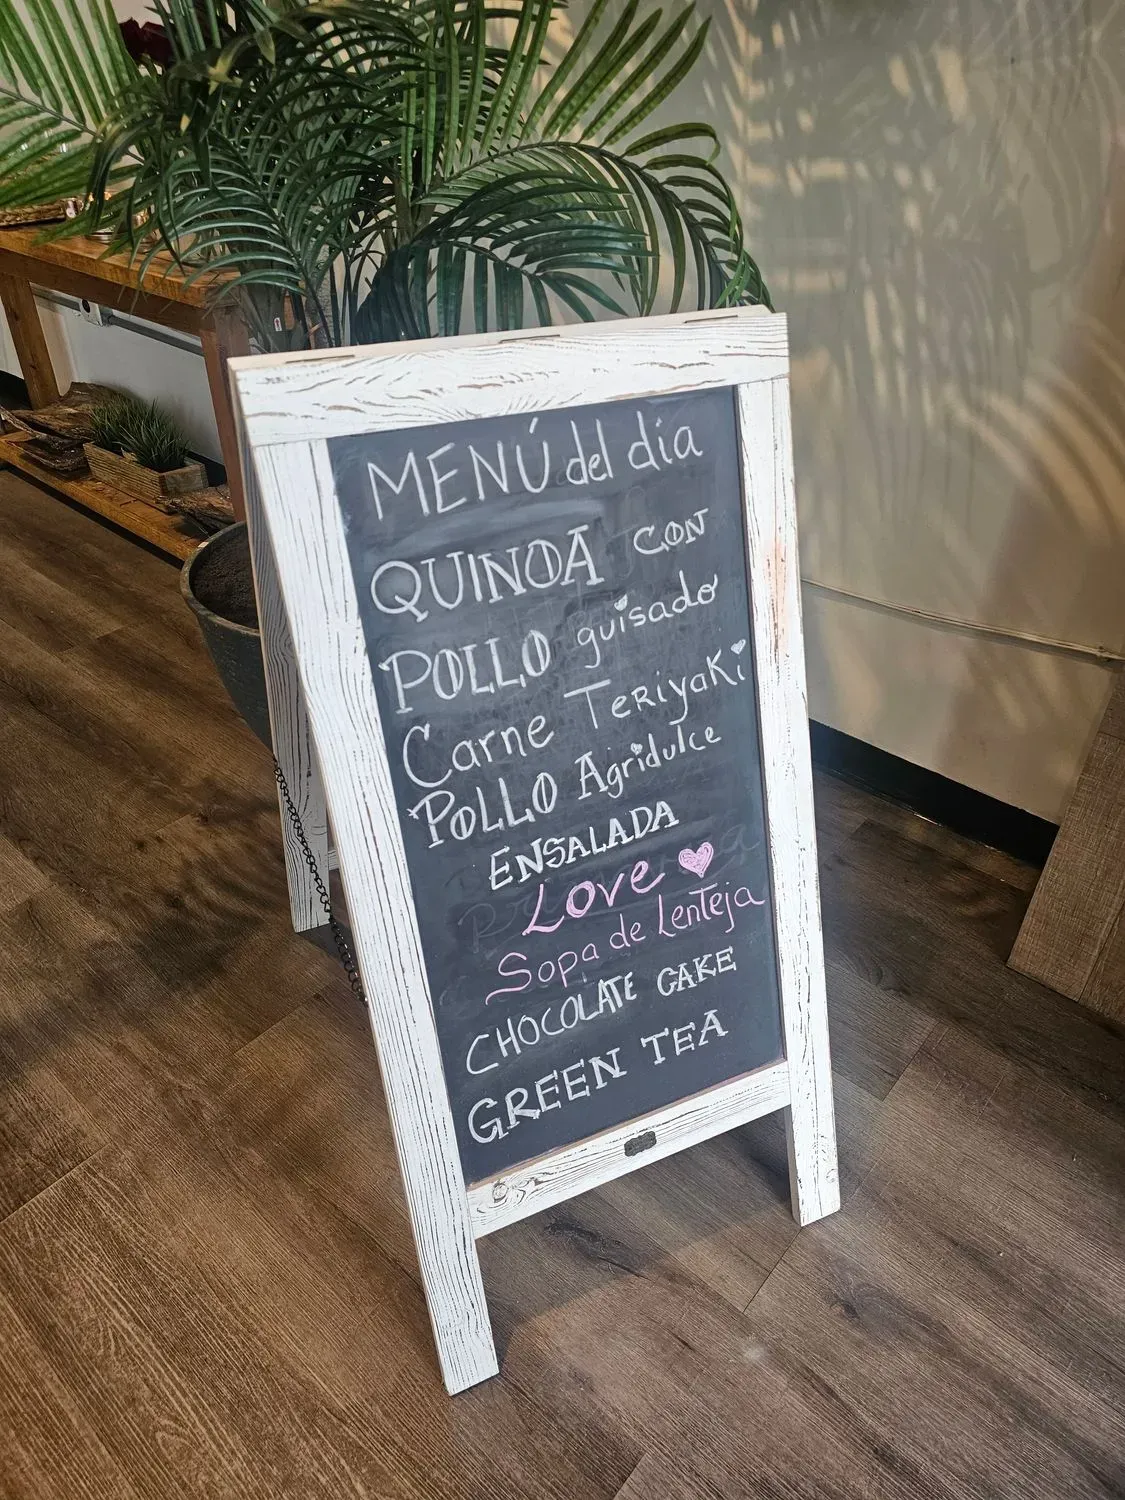 MENÚ del dia
QUINOA CON
POLLO guisado
Carne Teriyaki
POLLO Agridulce
ENSALADA
Love
Sopa de Lenteja
CHOCOLATE CAKE
GREEN TEA